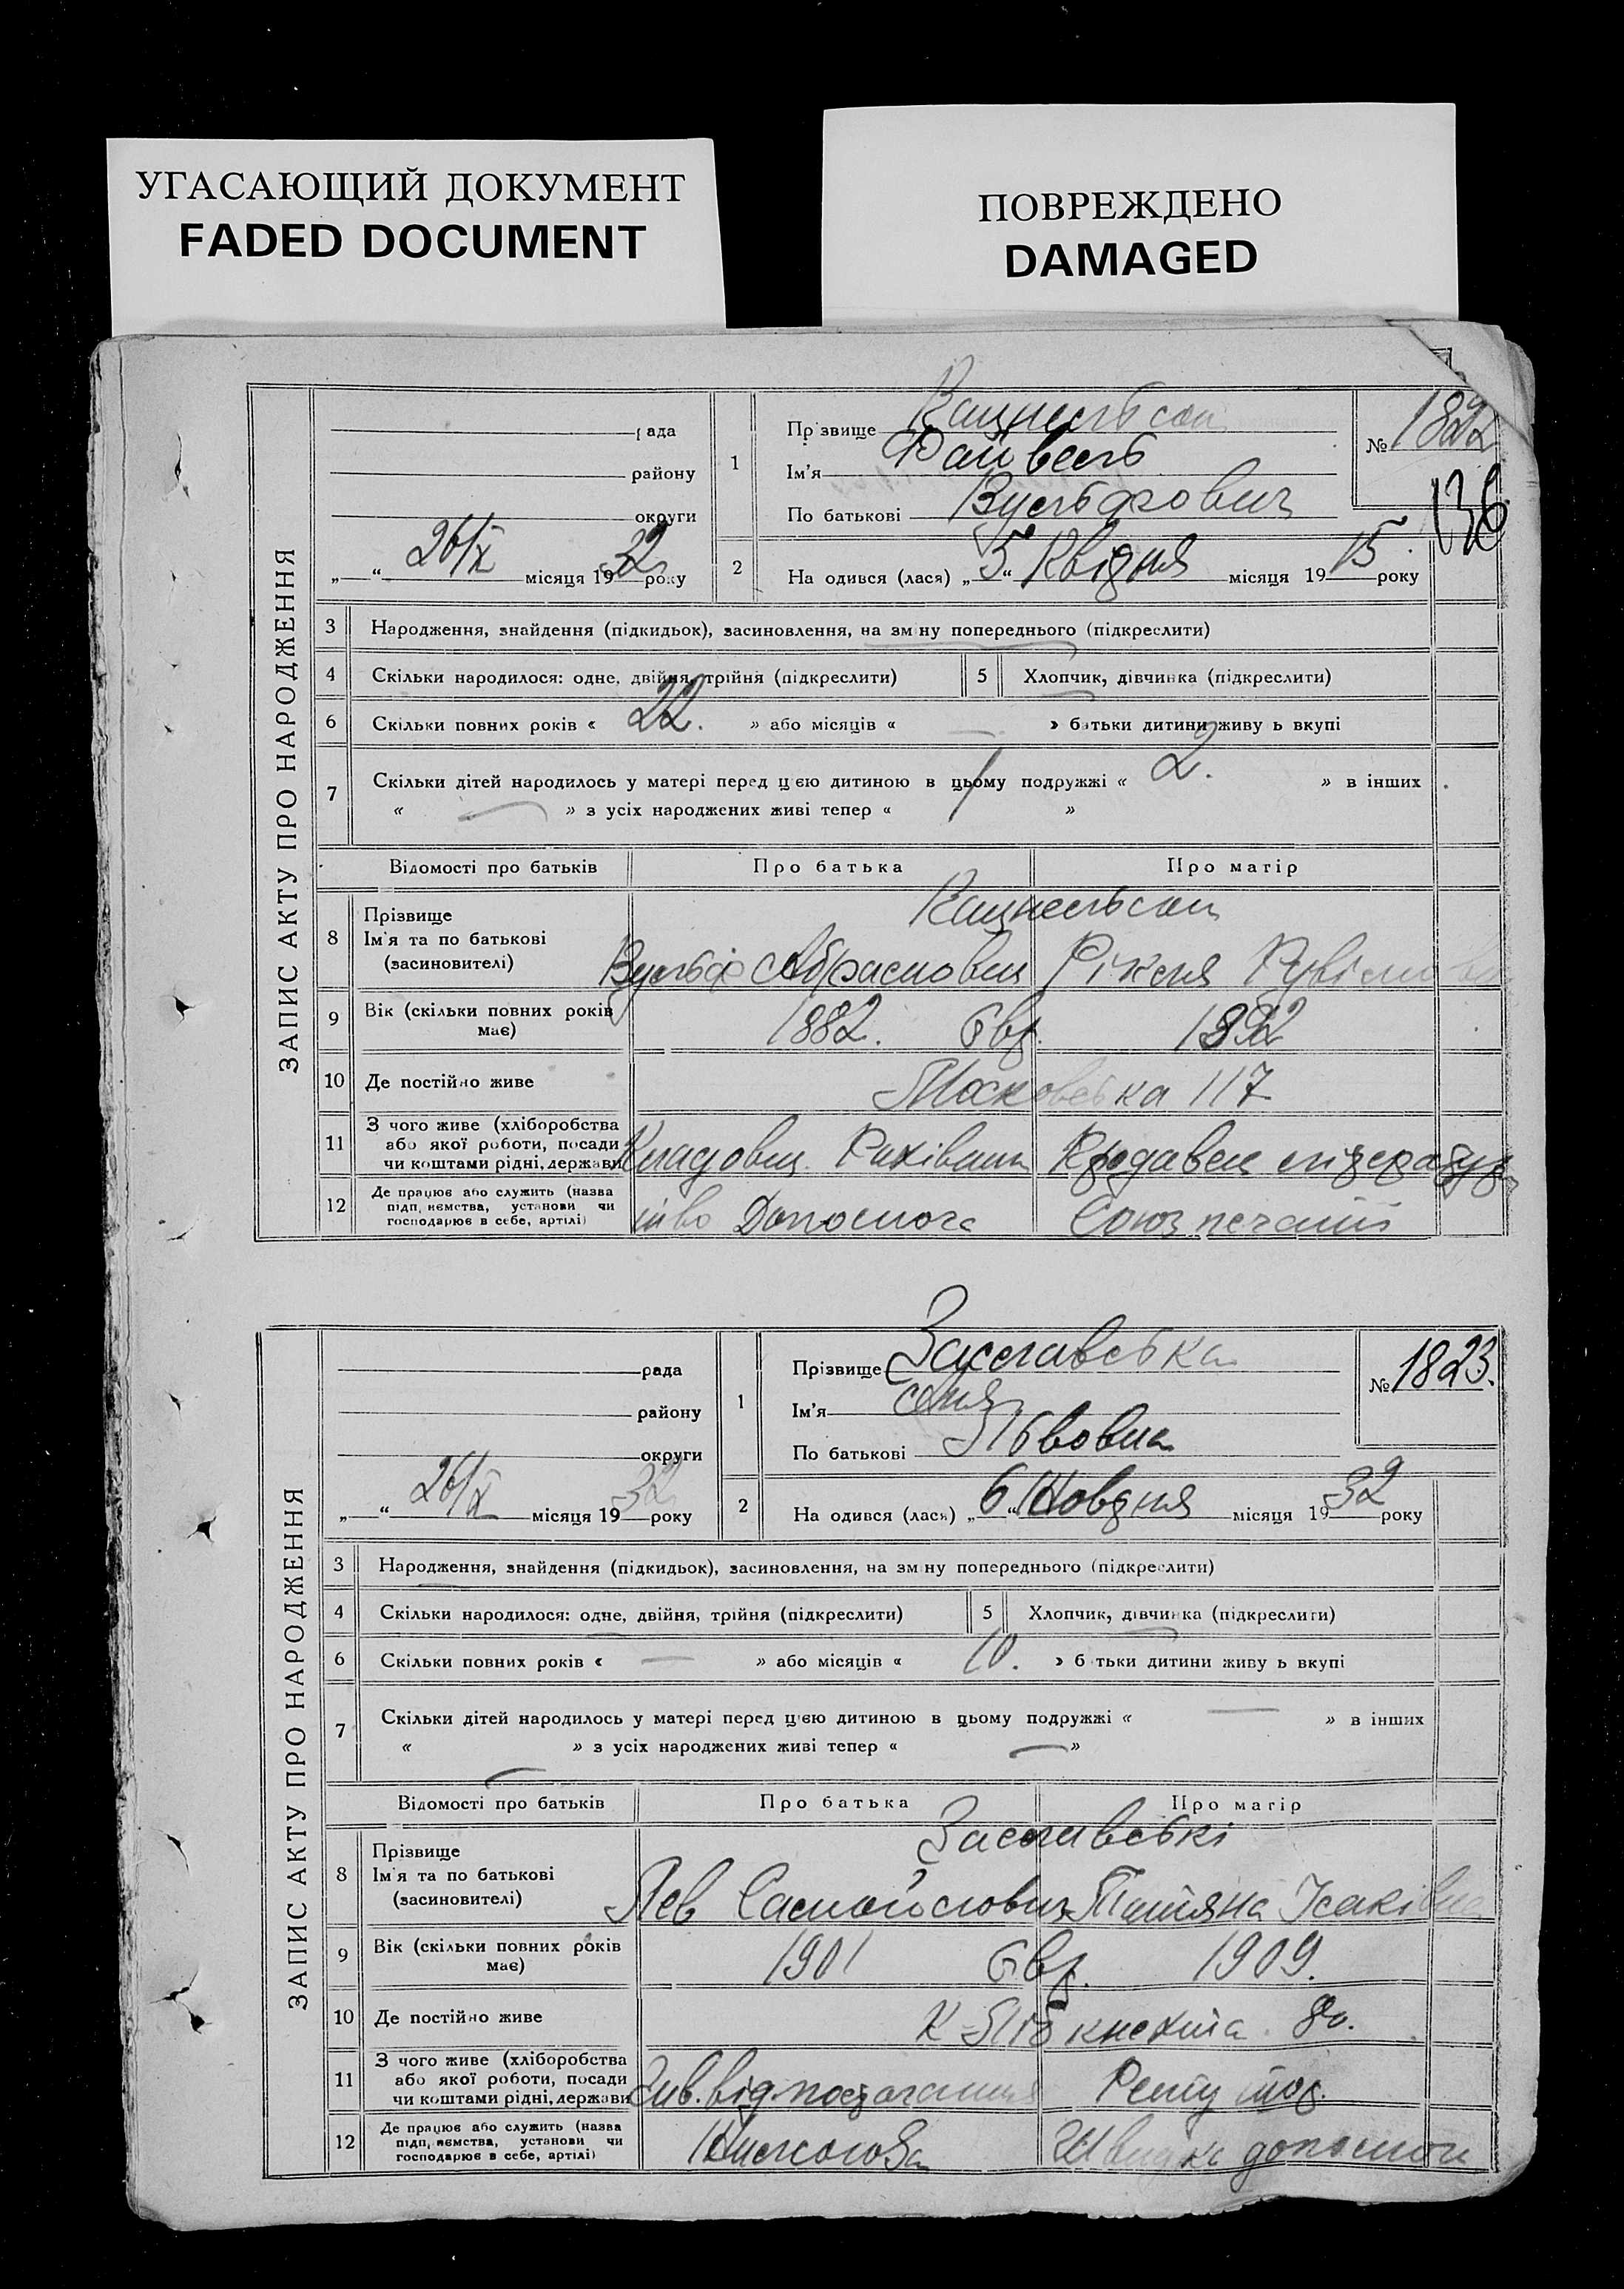 УГАСАЮЩИЙ ДОКУМЕНТ
FADED DOCUMENT
ПОВРЕЖДЕНО
DAMAGED
ЗАПИС АКТУ ПРО НАРОДЖЕННЯ
рада
району
округи
„ “ 26/X місяця 1932 року
1
Прізвище Кацнельсон
Ім'я Файвель
По батькові Вульфович
№ 1822
136
2 На одився (лася) „5“ Квідня місяця 1915 року
3 Народження, знайдення (підкидьок), засиновлення, на зм ну попереднього (підкреслити)
4 Скільки народилося: одне, двійня, трійня (підкреслити)
5 Хлопчик, дівчинка (підкреслити)
6 Скільки повних років « 22. » або місяців « — » батьки дитини живу ь вкупі
7 Скільки дітей народилось у матері перед цією дитиною в цьому подружжі « 2. » в інших
« — » з усіх народжених живі тепер « / »
Відомості про батьків Про батька Про матір
8 Прізвище
Ім'я та по батькові
(засиновителі)
Кацнельсон
Вульф Абрамович
9 Вік (скільки повних років має) 1882. Євр. 1892
10 Де постійно живе Московська 117
11 З чого живе (хліборобства
або якої роботи, посади
чи коштами рідні, держави
Кладовщ. Продавец літератур
12 Де працює або служить (назва
підп, иємства, установи чи
господарює в себе, артілі)
Допомога Союзпечати
ЗАПИС АКТУ ПРО НАРОДЖЕННЯ
рада
району
округи
„ “ 26/X місяця 1932 року
1
Прізвище Заславська
Ім'я
По батькові Львовна
№ 1823.
2 На одився (лася) „6“ Жовдня місяця 1932 року
3 Народження, знайдення (підкидьок), засиновлення, на зм ну попереднього (підкреслити)
4 Скільки народилося: одне, двійня, трійня (підкреслити)
5 Хлопчик, дівчинка (підкреслити)
6 Скільки повних років « — » або місяців « 10. » б тьки дитини живу ь вкупі
7 Скільки дітей народилось у матері перед цією дитиною в цьому подружжі « — » в інших
« — » з усіх народжених живі тепер « — »
Відомості про батьків Про батька Про матір
8 Прізвище
Ім'я та по батькові
(засиновителі)
Заславські
Лев Самойлович Татяна Ісаківна
9 Вік (скільки повних років має) 1901 Євр. 1909.
10 Де постійно живе К-Лібкнехта 80.
11 З чого живе (хліборобства
або якої роботи, посади
чи коштами рідні, держави
Зав. від. постачання
12 Де працює або служить (назва
підп, иємства, установи чи
господарює в себе, артілі)
Швидка допомога